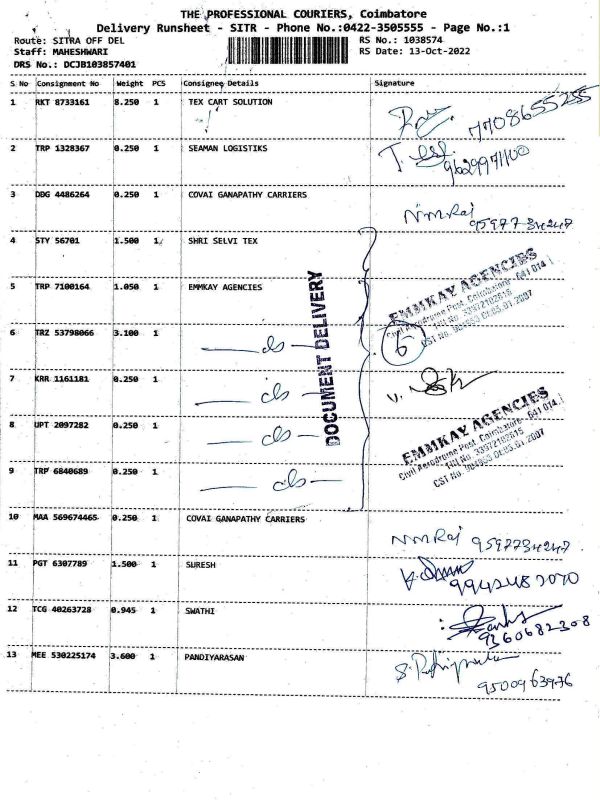 THE PROFESSIONAL COURIERS, Coimbatore
Delivery Runsheet - SITR - Phone No.:0422-3505555 - Page No.:1
Route: SITRA OFF DEL RS No.: 1038574
Staff: MAHESHWARI RS Date: 13-Oct-2022
DRS No.: DCJB103857401
S No Consignment No Weight PCS Consignee Details Signature
1 RKT 8733161 8.250 1 TEX CART SOLUTION
7708655255
2 TRP 1328367 0.250 1 SEAMAN LOGISTIKS
9629971100
3 DDG 4486264 0.250 1 COVAI GANAPATHY CARRIERS
NMRaj 9597734247
4 STY 56701 1.500 1 SHRI SELVI TEX
5 TRP 7100164 1.050 1 EMMKAY AGENCIES
EMMKAY AGENCIES
Civil Aerodrome Post, Coimbatore - 641 014
TIN No. 33972102615
CST No. 904953 Dt.05.01.2007
DOCUMENT DELIVERY
6 TRZ 53798066 3.100 1 do
6
7 KRR 1161181 0.250 1 do
8 UPT 2097282 0.250 1 do
EMMKAY AGENCIES
Civil Aerodrome Post, Coimbatore - 641 014
TIN No. 33972102615
CST No. 904953 Dt.05.01.2007
9 TRP 6840689 0.250 1 do
10 MAA 569674465 0.250 1 COVAI GANAPATHY CARRIERS
NMRaj 9597734247
11 PGT 6307789 1.500 1 SURESH
9942482070
12 TCG 40263728 0.945 1 SWATHI
9360682308
13 MEE 530225174 3.600 1 PANDIYARASAN
9500963976